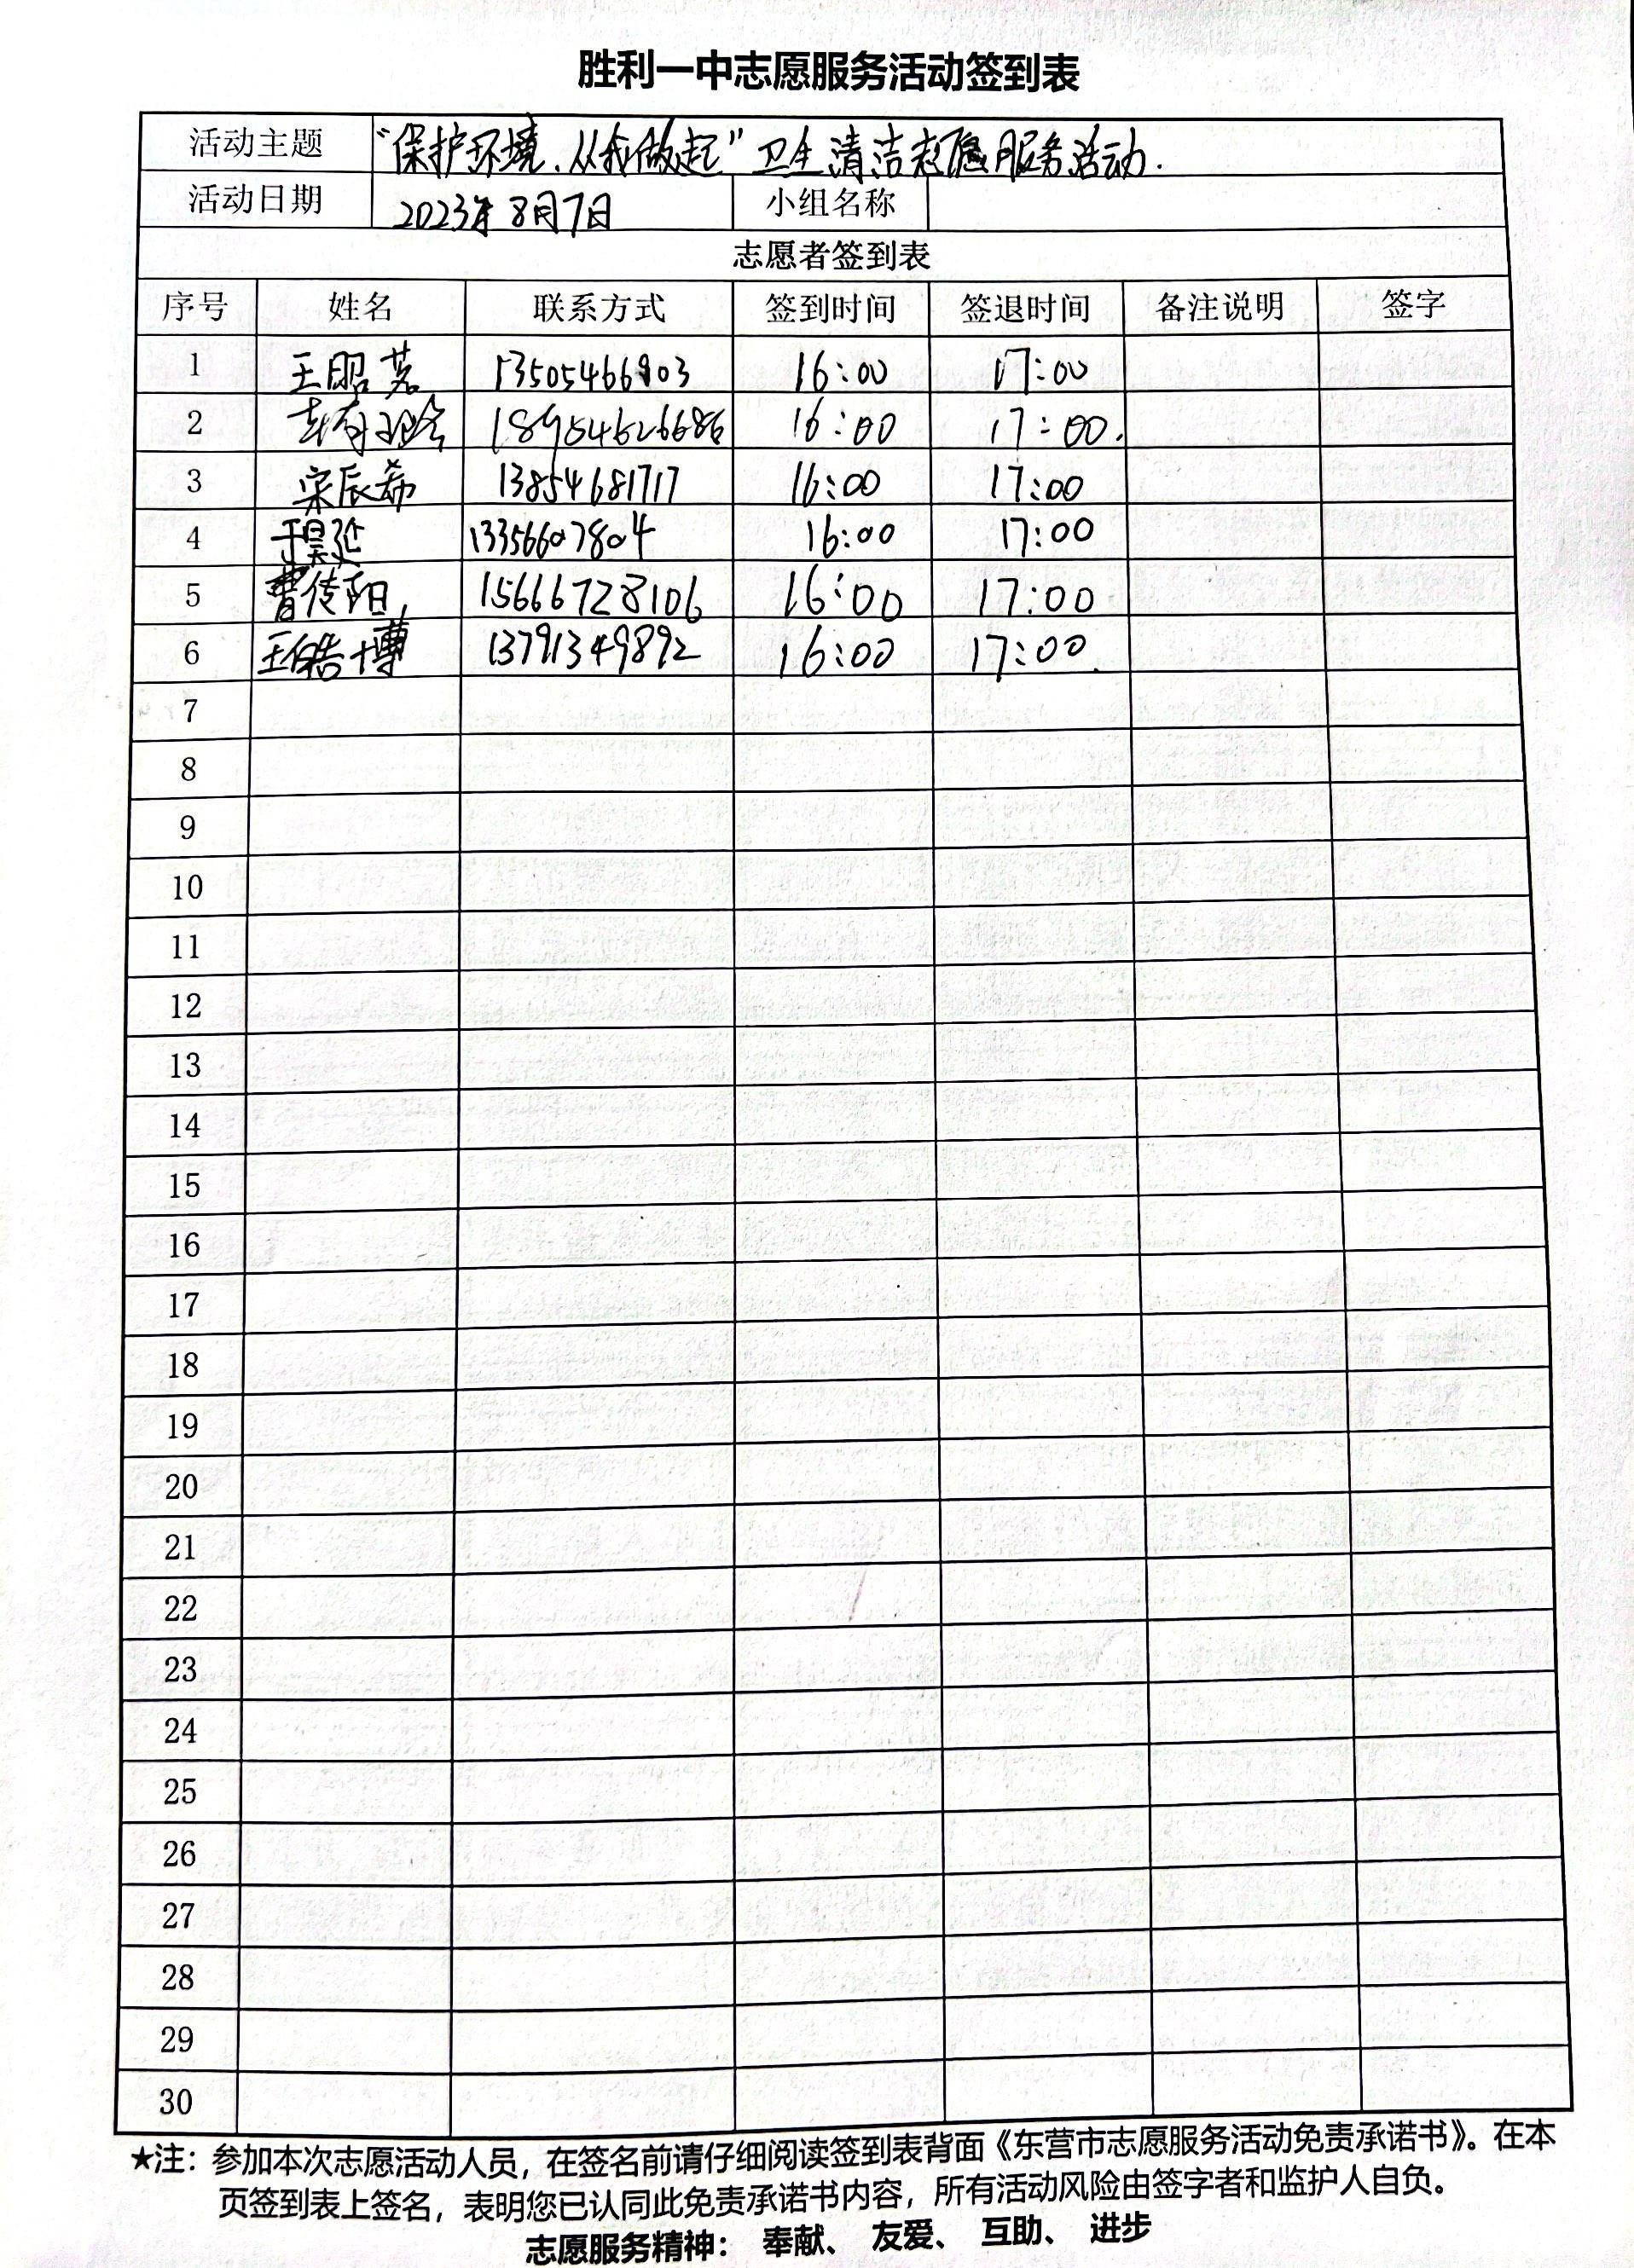 胜利一中志愿服务活动签到表
活动主题 “保护环境、从我做起”卫生清洁志愿服务活动.
活动日期 2023年8月7日 小组名称
志愿者签到表
序号 姓名 联系方式 签到时间 签退时间 备注说明 签字
1 王昭茗 13505466903 16:00 17:00
2 18954626686 16:00 17:00.
3 宋辰希 13854681717 16:00 17:00
4 于昊延 13356607804 16:00 17:00
5 曹传阳 15666728106 16:00 17:00
6 王皓博 13791349892 16:00 17:00.
7
8
9
10
11
12
13
14
15
16
17
18
19
20
21
22
23
24
25
26
27
28
29
30
★注：参加本次志愿活动人员，在签名前请仔细阅读签到表背面《东营市志愿服务活动免责承诺书》。在本
页签到表上签名，表明您已认同此免责承诺书内容，所有活动风险由签字者和监护人自负。
志愿服务精神： 奉献、 友爱、 互助、 进步